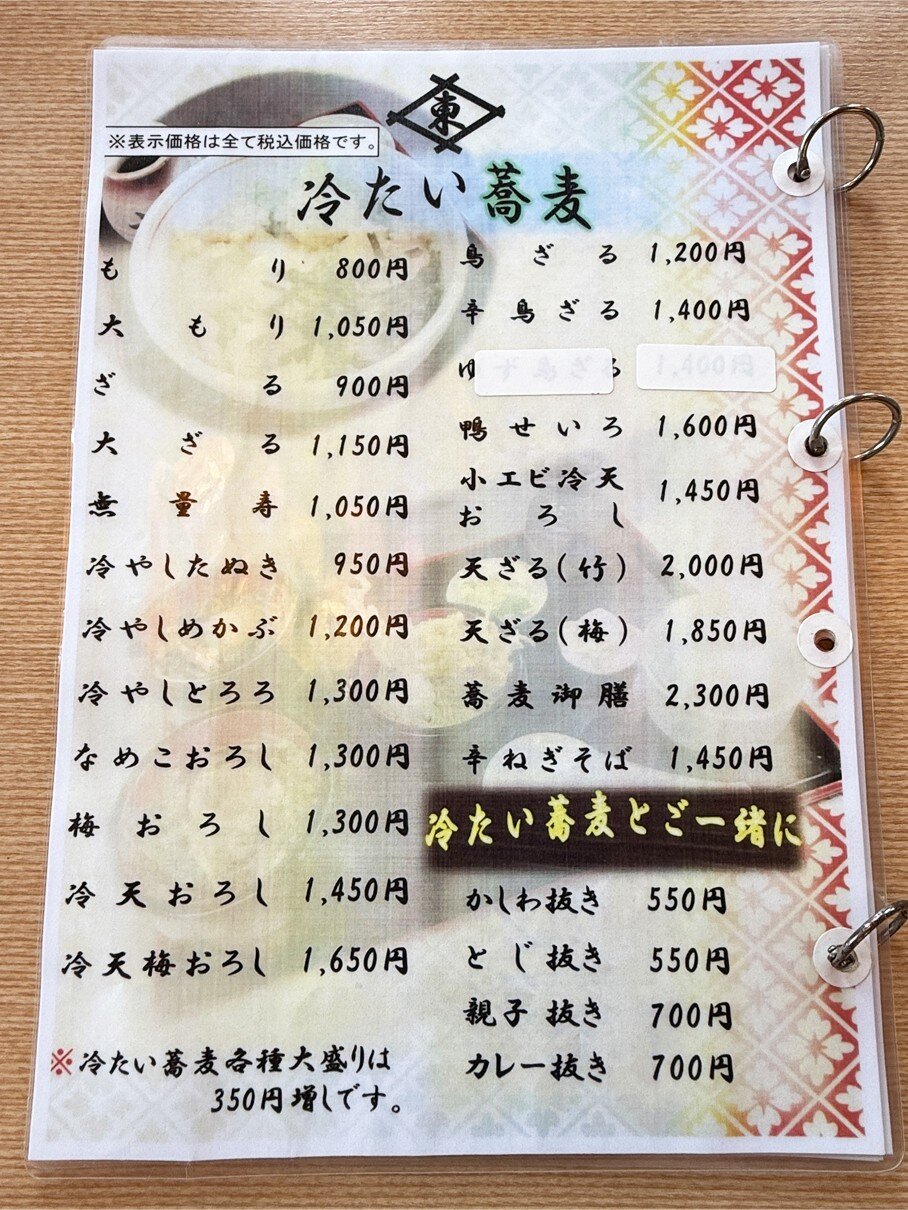 東
※表示価格は全て税込価格です。
冷たい蕎麦
もり 800円
大もり 1,050円
ざる 900円
大ざる 1,150円
無量寿 1,050円
冷やしたぬき 950円
冷やしめかぶ 1,200円
冷やしとろろ 1,300円
なめこおろし 1,300円
梅おろし 1,300円
冷天おろし 1,450円
冷天梅おろし 1,650円
※冷たい蕎麦各種大盛りは
350円増しです。
鳥ざる 1,200円
辛鳥ざる 1,400円
ゆず鳥ざる 1,400円
鴨せいろ 1,600円
小エビ冷天
おろし 1,450円
天ざる(竹) 2,000円
天ざる(梅) 1,850円
蕎麦御膳 2,300円
辛ねぎそば 1,450円
冷たい蕎麦とご一緒に
かしわ抜き 550円
とじ抜き 550円
親子抜き 700円
カレー抜き 700円